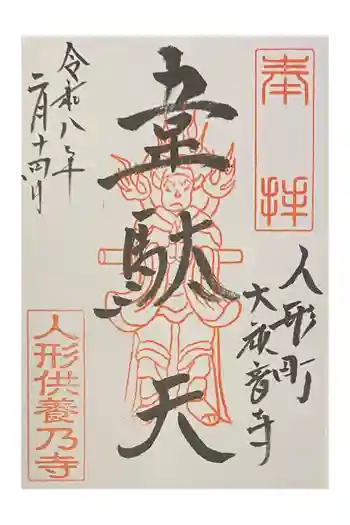 奉拝
韋駄天
人形町
大観音寺
令和八年
二月十四日
人形供養乃寺